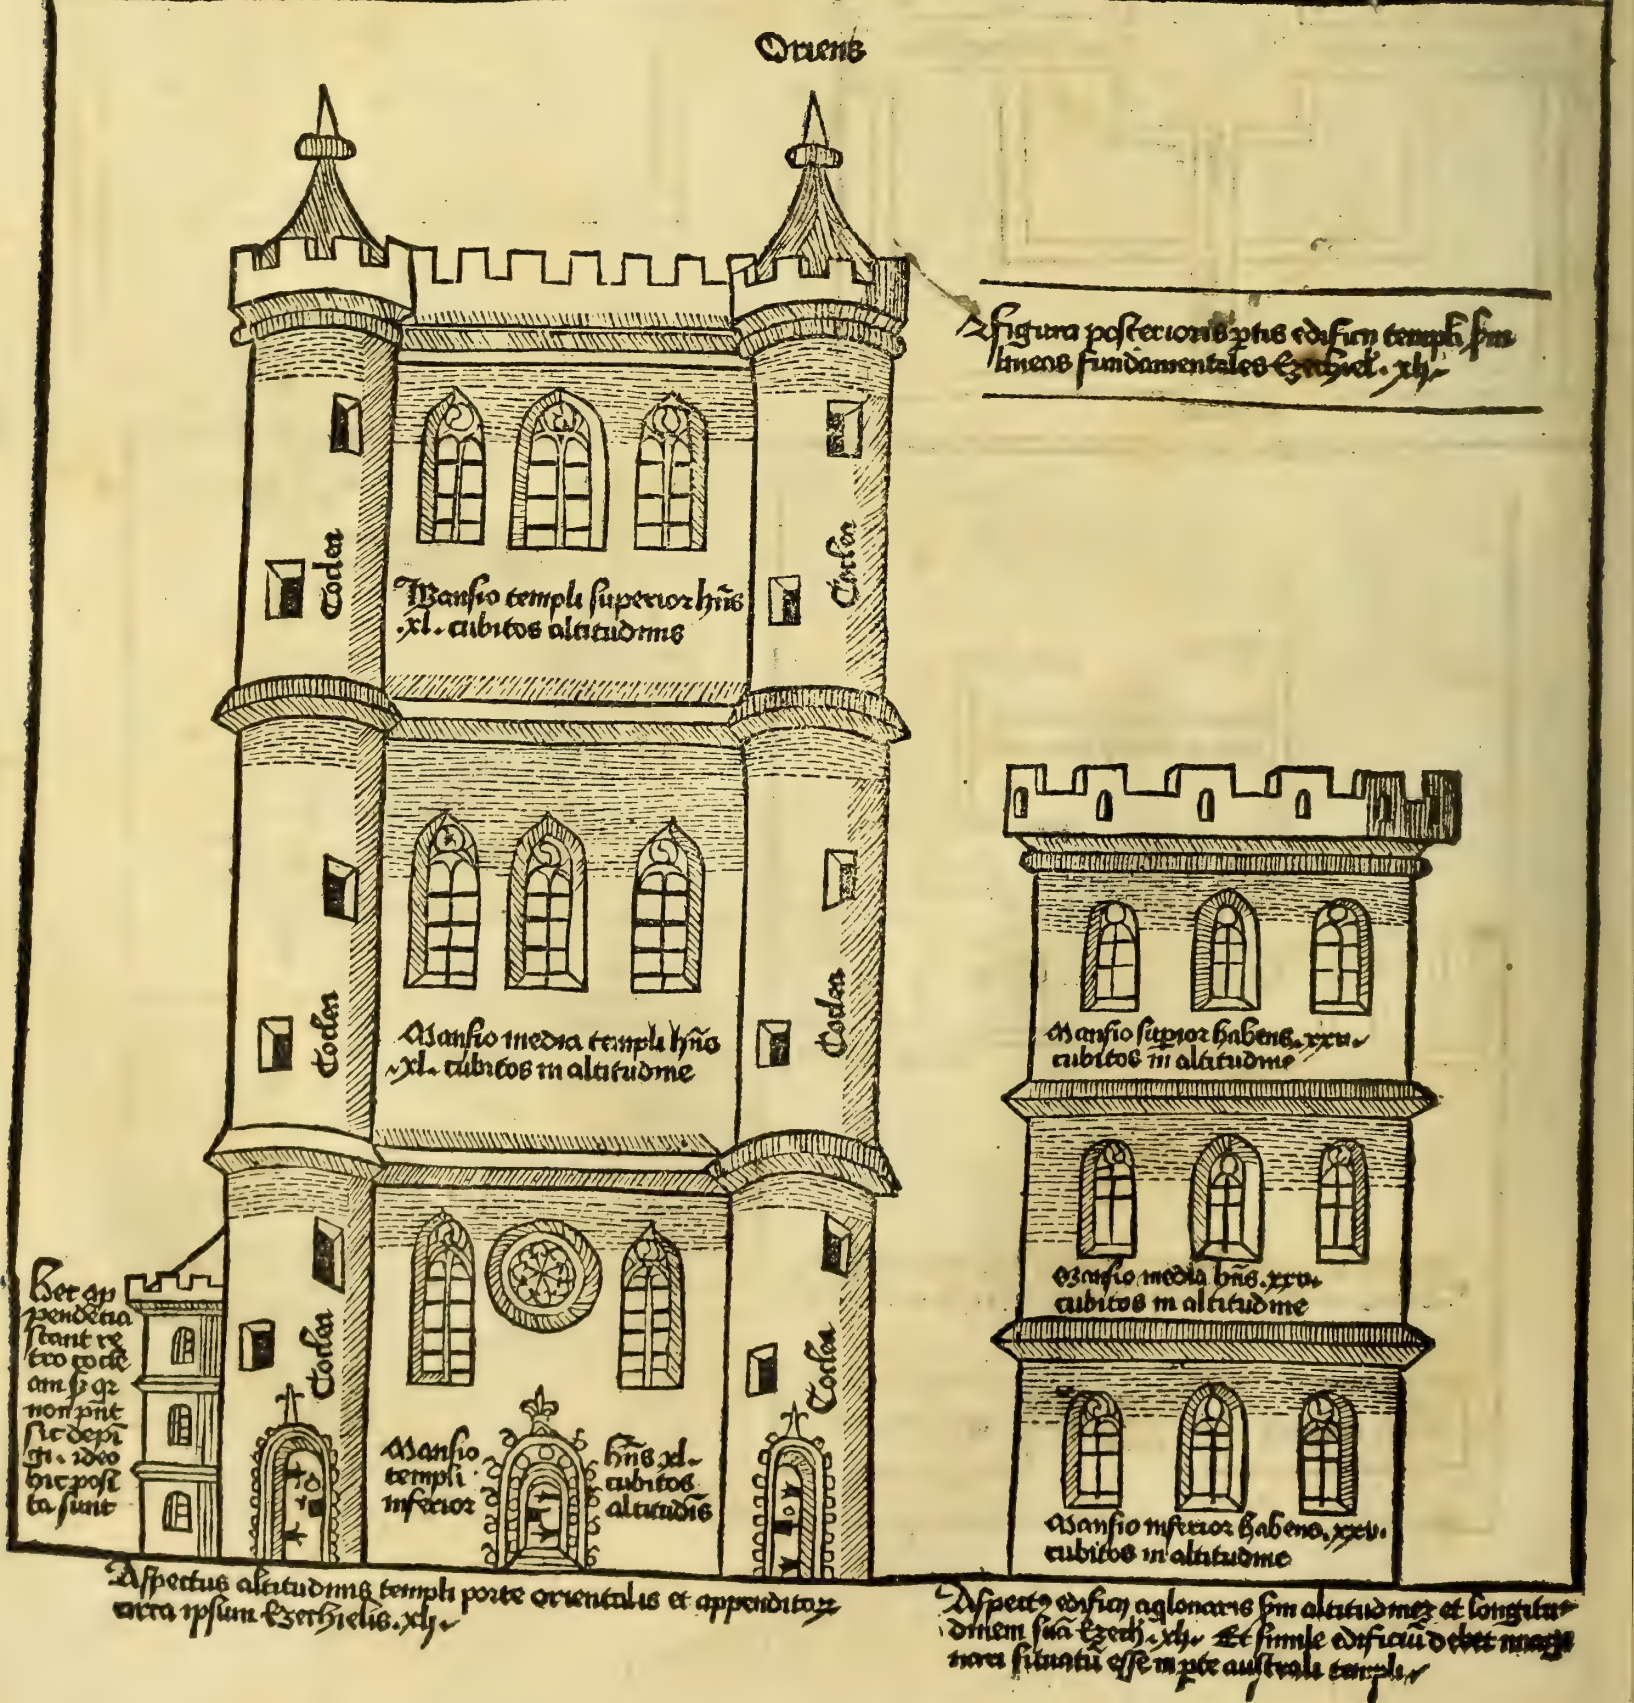 Oriens
Figura posterioris ꝑtis edificij templi ẜm
lineas fundamentales Ezechiel. xlj.
Coclea
Coclea
Mansio templi superior hñs
.xl. cubitos altitudinis
Coclea
Coclea
Mansio media templi hñs
.xl. cubitos in altitudine
Mansio sup̱ior habens. xxv.
cubitos in altitudine
Mansio media hñs. xxv.
cubitos in altitudine
Mansio inferior habens. xxv.
cubitos in altitudine
Hec ap
pendẽtia
stant re
tro cocle
am sꝫ qꝛ
non pñt
sic depĩ
gi. ideo
hic posi
ta sunt
Coclea
Coclea
Mansio
templi
inferior
hñs xl.
cubitos
altitudĩs
Aspectus altitudinis templi porte orientalis et appenditioꝝ
circa ipsum Ezechielis. xlj.
Aspectꝰ edificij aq̃lonaris ẜm altitudinẽ et longitu
dinem suã Ezech. xlj. Et simile edificiũ debet imagi
nari situatũ esse in ꝑte australi templi.